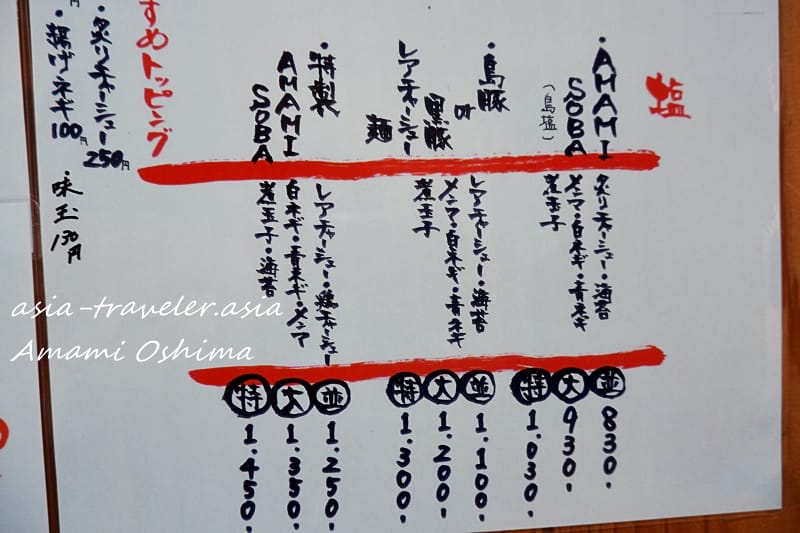 塩
・AMAMI
SOBA
(島塩)
炙りチャーシュー・海苔
メンマ・白ネギ・青ネギ
煮玉子
並 830.
大 930.
特 1.030.
・島豚
or
黒豚
レアチャーシュー
麺
レアチャーシュー・海苔
メンマ・白ネギ・青ネギ
煮玉子
並 1.100.
大 1.200.
特 1.300.
・特製
AMAMI
SOBA
レアチャーシュー・鶏チャーシュー
白ネギ・青ネギ・メンマ
煮玉子・海苔
並 1.250.
大 1.350.
特 1.450.
すめトッピング
・炙りチャーシュー 250円
・揚げネギ 100円
味玉 130円
asia-traveler.asia
Amami Oshima